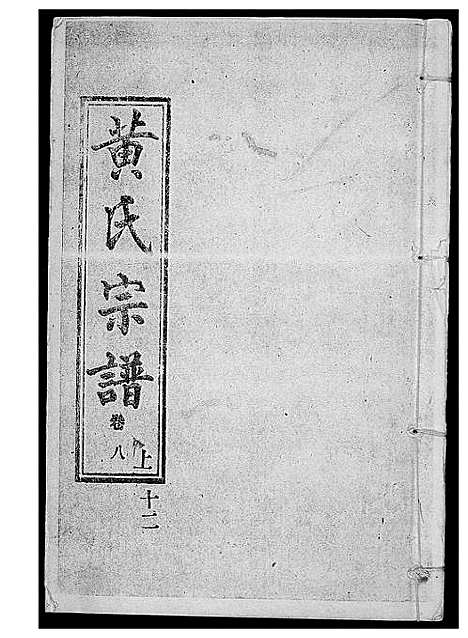 黃氏宗譜
卷八上
十二